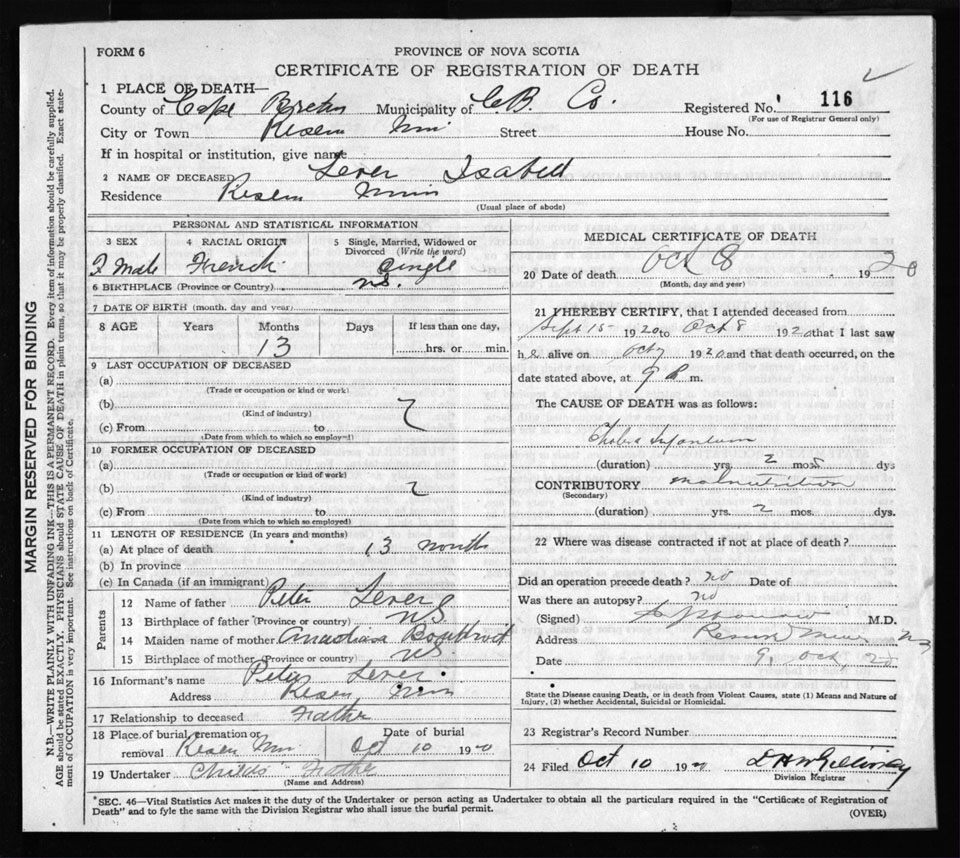 FORM 6
PROVINCE OF NOVA SCOTIA
CERTIFICATE OF REGISTRATION OF DEATH
1 PLACE OF DEATH—
County of Cape Breton Municipality of C.B. Co. Registered No. 116
(For use of Registrar General only)
City or Town Street House No.
If in hospital or institution, give name
2 NAME OF DECEASED Lever Isabell
Residence
(Usual place of abode)
PERSONAL AND STATISTICAL INFORMATION
3 SEX 4 RACIAL ORIGIN 5 Single, Married, Widowed or Divorced (Write the word)
F Male French Single
6 BIRTHPLACE (Province or Country) NS.
7 DATE OF BIRTH (month, day and year)
8 AGE Years Months Days If less than one day,
13 hrs. or min.
9 LAST OCCUPATION OF DECEASED
(a)
(Trade or occupation or kind or work)
(b)
(Kind of industry)
(c) From to
(Date from which to which so employed)
10 FORMER OCCUPATION OF DECEASED
(a)
(Trade or occupation or kind of work)
(b)
(Kind of industry)
(c) From to
(Date from which to which so employed)
11 LENGTH OF RESIDENCE (In years and months)
(a) At place of death 13 months
(b) In province
(c) In Canada (if an immigrant)
Parents
12 Name of father Peter Lever
13 Birthplace of father (Province or country) NS
14 Maiden name of mother
15 Birthplace of mother (Province or country) NS.
16 Informant's name Peter Lever
Address
17 Relationship to deceased Father
18 Place of burial, cremation or removal Date of burial
Oct 10 1920
19 Undertaker Childs Father
(Name and Address)
MEDICAL CERTIFICATE OF DEATH
20 Date of death Oct 8 1920
(Month, day and year)
21 I HEREBY CERTIFY, that I attended deceased from
Sept 15 1920 to Oct 8 1920 that I last saw
h alive on Oct 7 1920 and that death occurred, on the
date stated above, at 9 m.
The CAUSE OF DEATH was as follows:
Cholera Infantum
(duration) yrs. 2 mos dys
CONTRIBUTORY Malnutrition
(Secondary)
(duration) yrs. 2 mos. dys.
22 Where was disease contracted if not at place of death?
Did an operation precede death? no Date of
Was there an autopsy? no
(Signed) M.D.
Address NS
Date 9. Oct, 20
State the Disease causing Death, or in death from Violent Causes, state (1) Means and Nature of
Injury, (2) whether Accidental, Suicidal or Homicidal.
23 Registrar's Record Number
24 Filed Oct 10 1920
Division Registrar
*SEC. 46—Vital Statistics Act makes it the duty of the Undertaker or person acting as Undertaker to obtain all the particulars required in the "Certificate of Registration of
Death" and to fyle the same with the Division Registrar who shall issue the burial permit.
(OVER)
MARGIN RESERVED FOR BINDING
N.B.—WRITE PLAINLY WITH UNFADING INK—THIS IS A PERMANENT RECORD. Every item of information should be carefully supplied.
AGE should be stated EXACTLY. PHYSICIANS should STATE CAUSE OF DEATH in plain terms, so that it may be properly classified. Exact state-
ment of OCCUPATION is very important. See instructions on back of Certificate.